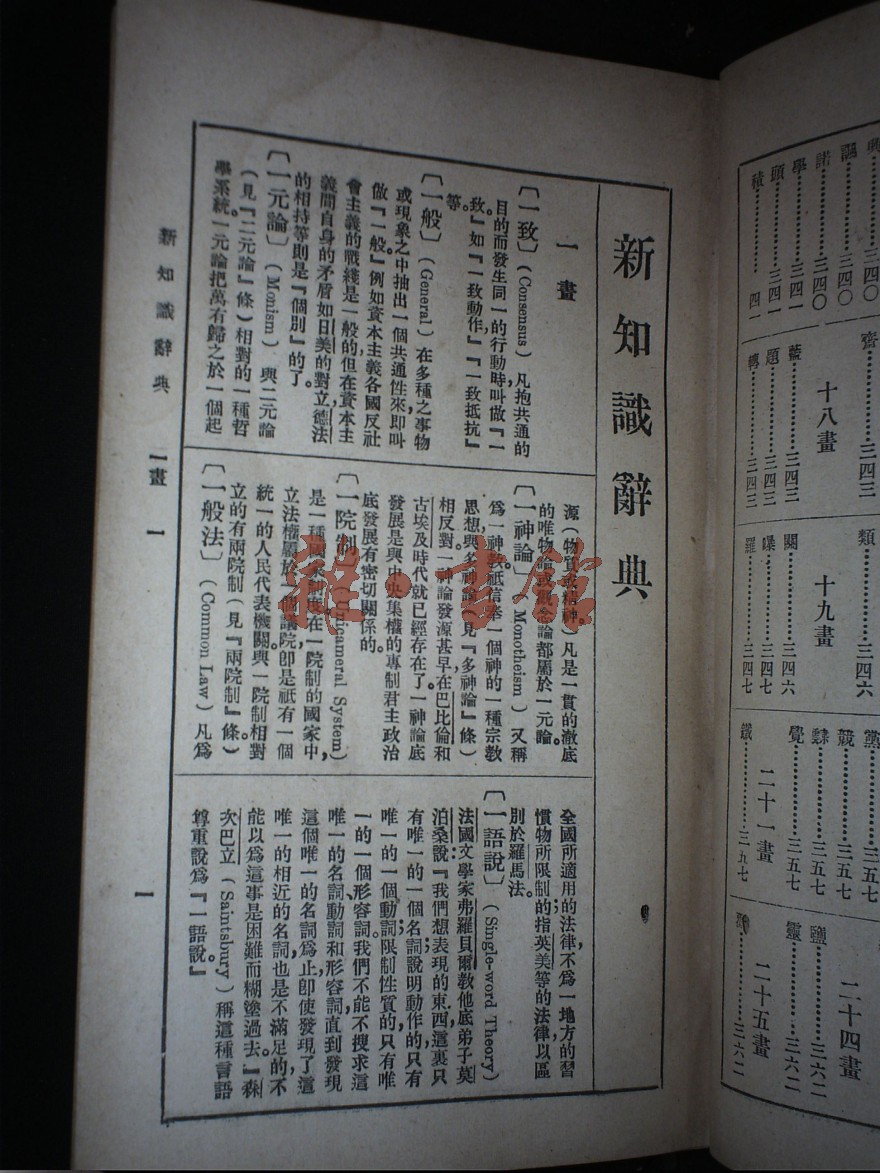 新知識辭典
一畫
〔一致〕(Consensus)凡抱共通的
目的而發生同一的行動時叫做『一
致』如『一致動作』『一致抵抗』
等。
〔一般〕(General)在多種之事物
或現象之中抽出一個共通性來即叫
做『一般』例如資本主義各國反社
會主義的戰綫是一般的，但在資本主
義間自身的矛盾如日美的對立，德法
的相持等則是『個別』的了。
〔一元論〕(Monism)與二元論
(見『二元論』條)相對的一種哲
學系統。一元論把萬有歸之於一個起
源(物質或精神)凡是一貫的澈底
的唯物論或觀念論都屬於一元論。
〔一神論〕(Monotheism)又稱
爲一神教祇信奉一個神的一種宗教
思想與多神論(見『多神論』條)
相反對。一神論發源甚早在巴比倫和
古埃及時代就已經存在了。一神論底
發展是與中央集權的專制君主政治
底發展有密切關係的。
〔一院制〕(Unicameral System)
是一種國家制度在一院制的國家中，
立法權屬於一個議院卽是祇有一個
統一的人民代表機關。與一院制相對
立的有兩院制(見『兩院制』條)
〔一般法〕(Common Law)凡爲
全國所適用的法律，不爲一地方的習
慣物所限制的；指英美等的法律以區
別於羅馬法。
〔一語說〕(Single-word Theory)
法國文學家弗羅貝爾教他底弟子莫
泊桑說：『我們想表現的東西，這裏只
有唯一的一個名詞；說明動作的只有
唯一的一個動詞；限制性質的，只有唯
一的一個形容詞。我們不能不搜求這
唯一的名詞、動詞和形容詞，直到發現
這個唯一的名詞爲止，卽使發現了這
唯一的相近的名詞也是不滿足的，不
能以爲這事是困難而糊塗過去。』森
次巴立(Saintsbury)稱這種言語
尊重說爲『一語說。』
新知識辭典 一畫 一
一
諾……三四〇
學……三四一
頭……三四一
積……四一
齊……三四三
十八畫
藍……三四三
題……三四三
轉……三四三
類……三四六
十九畫
關……三四六
羅……三四七
黨……三五七
競……三五七
覺……三五七
二十一畫
鐵……三九七
二十四畫
鹽……三六二
靈……三六二
二十五畫
三六二